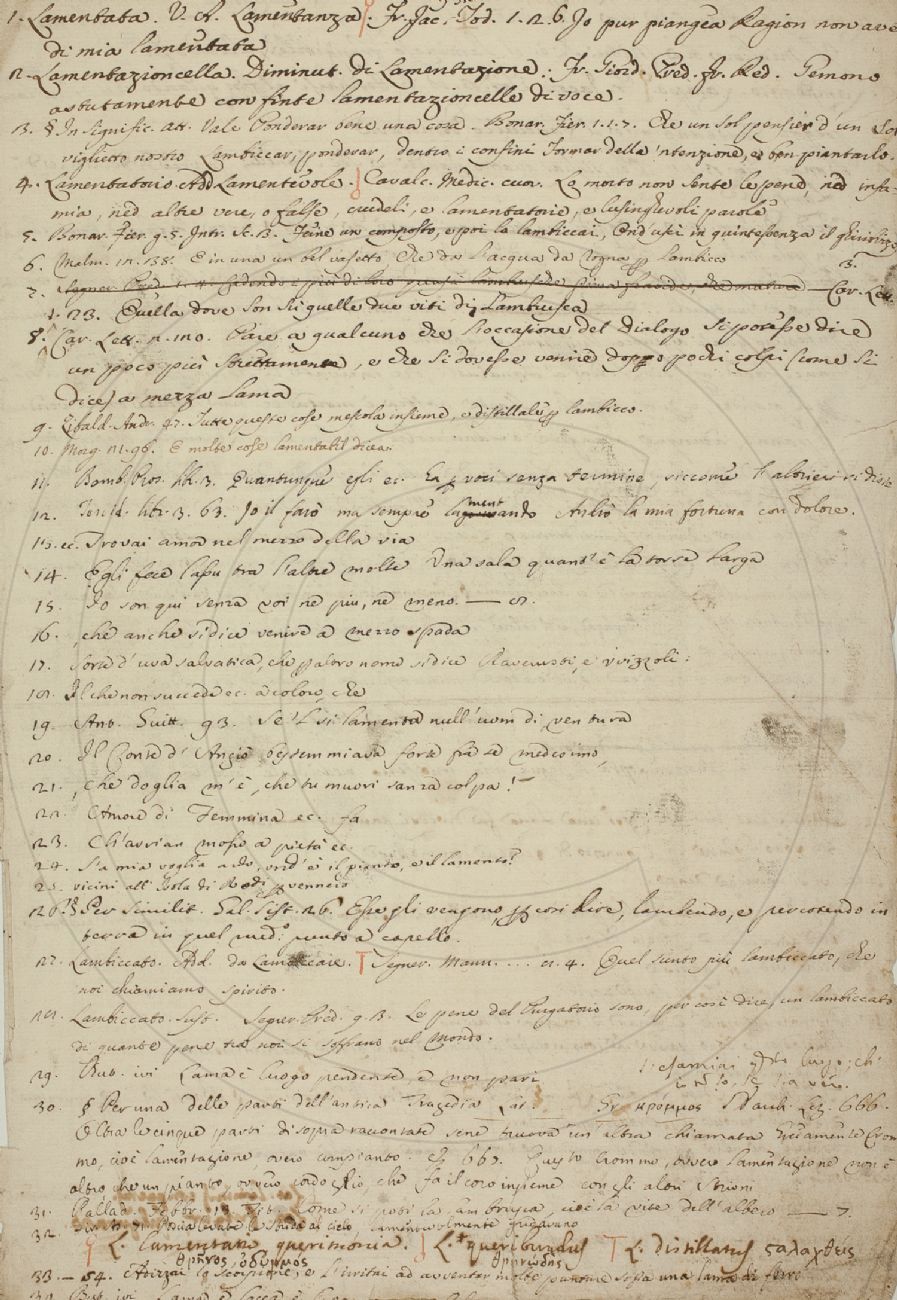 1. Lamentata. V. A. Lamentanza. Fr. Jac. Tod. 1. 2. 6. Io pur piangea Ragion non ave
di mia lamentata
2. Lamentazioncella. Diminut. di Lamentazione. Fr. Giord. Pred. Fr. Red. Gemono
astutamente con finte lamentazioncelle di voce.
3. § In signific. att. Vale Ponderar bene una cosa. Bonar. Fier. 1. 1. 7. Che un sol pensier d'un
viglietto nostro Lambiccar, ponderar, dentro i confini Formar della 'ntenzione, e ben piantarlo.
4. Lamentatorio Add. Lamentevole. Cavalc. Medic. cuor. Lo morto non sente le pene, nè infa-
mia, nè altre vere, o false, crudeli, e lamentatorie, e lusinghevoli parole
5. Bonar. Fier. g. 5. Intr. sc. 3. Feine un composto, e poi la lambiccai, Ond' uscì in quintessenza il
6. Malm. E in una un bel vasetto Che dà l'acqua da rogna p lambicco
7. Car. Lett.
1. 23. Quella dove son sù quelle due viti di Lambrusca
8. Car. Lett. Pare a qualcuno che l'occasione del dialogo si potesse dire
un poco più strettamente, e che si dovesse venire doppo pochi colpi (come si
dice) a mezza lama
9. Zibald. Andr. 47. Tutte queste cose mescola insieme, e distillale p lambicco.
10. Morg. E molte cose lamentabil dicea:
11. Quantunque egli ec. senza termine, siccome l'altrieri vi disse
12. 3. 63. Io il farò ma sempre lamentando Anderò la mia fortuna con dolore.
13. ec. Trovai amor nel mezzo della via
14. Egli fece la su tra l'altre molte Una sala quant' è la torre larga
15. Io son qui senza voi nè piu, nè meno. —
16. che anche si dice venire a mezza spada
17. Sorta d' uva salvatica, che p altro nome si dice Raverusti, e
18. Il che non succede ec. a coloro che
19. Ant. Guitt. 93. Se 'l si lamenta null' uom di ventura
20. Il Conte d' Angiò bestemmiava forte fra se medesimo,
21. Che doglia m' è, che tu muori sanza colpa!
22. Amore di Femmina ec. fa
23. Ch' avrian mosso a pietà ec.
24. S' a mia voglia ardo, ond' è il pianto, e il lamento?
25. vicini all' Isola di Rodi pervennero
26. § Per similit. Gal. Sist. 26. Esse gli vengono p così dire, lambendo, e percotendo in
terra in quel med.º punto a capello.
27. Lambiccato. Add. da Lambiccare. Segner. Mann. .... 4. Quel siento più lambiccato, che
noi chiamiamo spirito.
28. Lambiccato. Sust. Segner. Pred. 9. 13. Le pene del Purgatorio sono, per così dire, un lambiccato
di quante pene tra noi si soffrano nel Mondo.
29. Rub. ivi Lama è luogo pendente, e non pari
30. § Per una delle parti dell' antica Tragedia Lat. Gr. κρόμμος Lez. 666.
Oltra le cinque parti di sopra raccontate sene truova un' altra chiamata Grecamente Crom
mo, cioè lamentazione, overo compianto. E 667. Questo Crommo, ovvero lamentazione non è
altro che un pianto, ovvero cordoglio, che fa il coro insieme con gli altri Strioni
31. Pallad. Febbr. Come si poti la lambrusca, cioè la vite dell' albero — 7.
32. levate le strida al cielo lamentevolmente gridavano
L. lamentatio querimonia. L. * queribundus L. distillatus σταλαχθείς
θρῆνος, ὀδυρμος θρηνώδης
33. — 54. lo scorpione, e l'invitai ad avventar molte punture sopra una lama di ferro